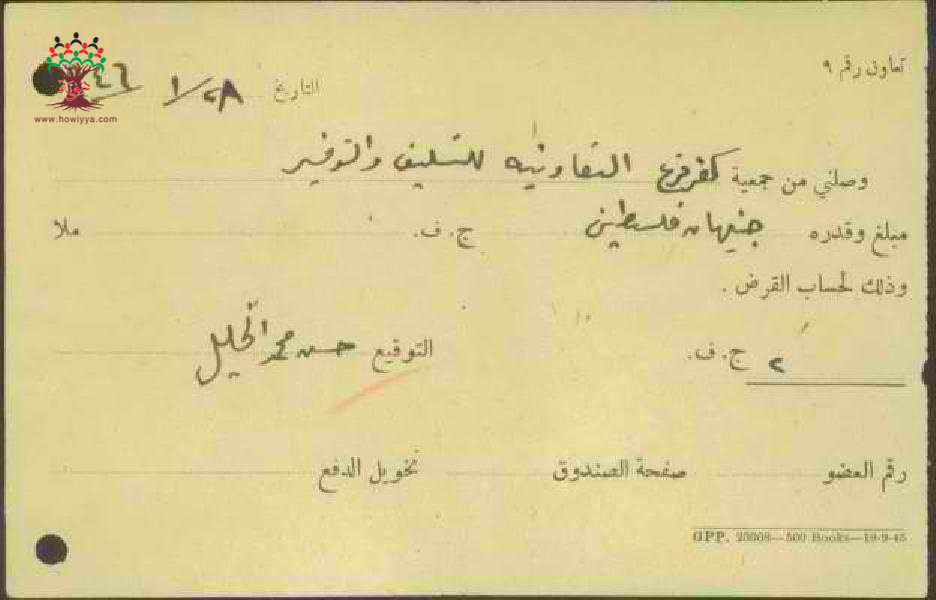 تعاون رقم ٩
التاريخ ٢٨/١/٤٦
www.howiyya.com
وصلني من جمعية كفر قرع التعاونية للتسليف والتوفير
مبلغ وقدره جنيهان فلسطيني ج. ف. ملا
وذلك لحساب القرض .
٢ ج. ف.
التوقيع حسن محمد الخليل
رقم العضو صفحة الصندوق تخويل الدفع
GPP. 25308—500 Books—18-9-45